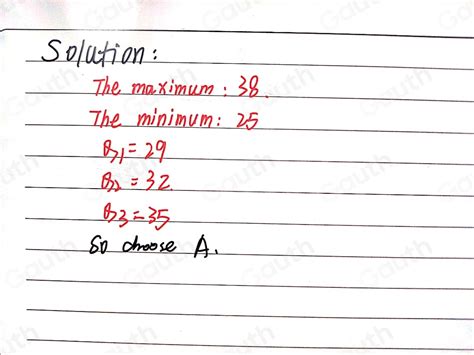 Solution:
The maximum: 38.
The minimum: 25
Q1=29
Q2=32
Q3=35
So choose A.